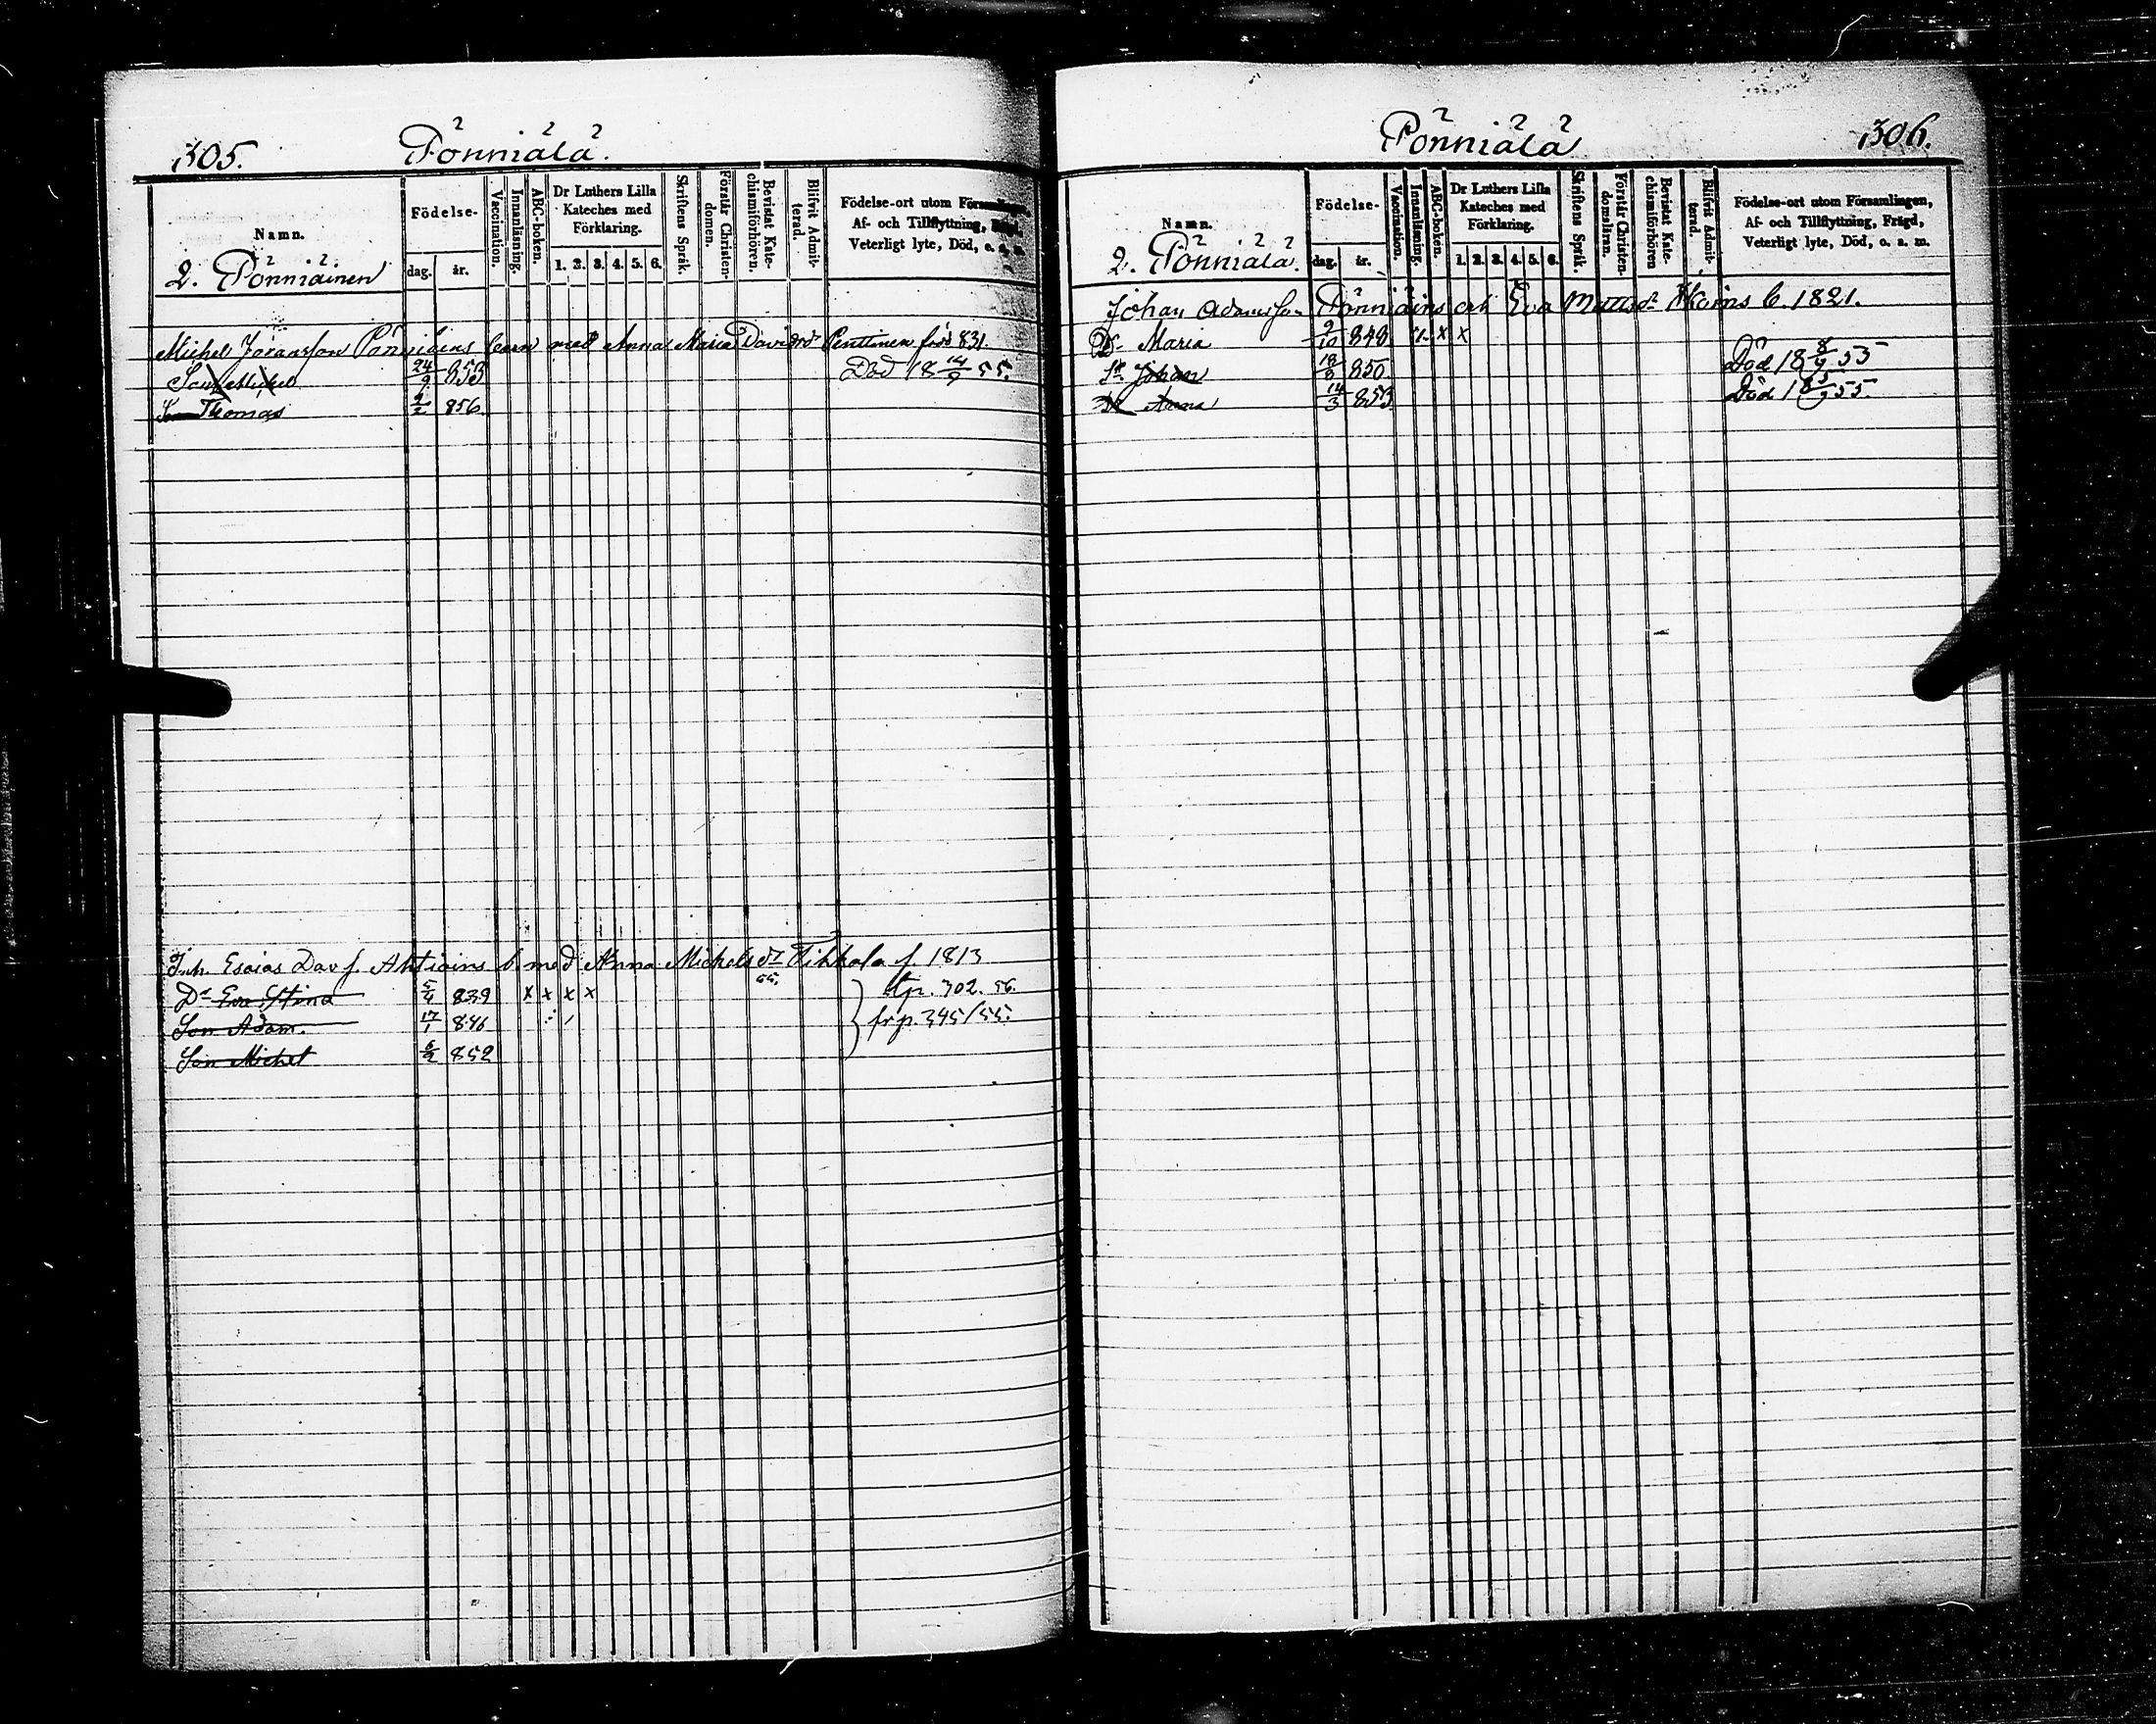 305. Pönniälä.
Namn. Födelse- dag. år. Vaccination. Innanläsning. ABC-boken. Dr Luthers Lilla Kateches med Förklaring. 1. 2. 3. 4. 5. 6. Skriftens Språk. Förstår Christendomen. Bevistat Katechismiförhören. Blifvit Admitterad. Födelse-ort utom Församlingen, Af- och Tillflyttning, Veterligt lyte, Död, o. s. m.
2. Pönniäinen
Michel Jöransson Pönniäins barn med Anna Maria Davidsdr Penttinen född 831.
Son Michel 24/9 853 Död 18 14/9 55.
Son Thomas 9/2 856
Inh. Esaias Dav f. Ahtiains b med Anna Michelsdr Tihkala f. 1813
Dr Eva Stina 5/4 839 x x x x 55. tp. 302. 56.
Son Adam. 17/1 846 frp. 345/55.
Son Michel 6/2 852
Pönniälä 306.
Namn. Födelse- dag. år. Vaccination. Innanläsning. ABC-boken. Dr Luthers Lilla Kateches med Förklaring. 1. 2. 3. 4. 5. 6. Skriftens Språk. Förstår Christendomsläran. Bevistat Katechismiförhören Blifvit Admitterad. Födelse-ort utom Församlingen, Af- och Tillflyttning, Frägd, Veterligt lyte, Död, o. s. m.
2. Pönniälä.
Johan Adamsson Pönniäins och Eva Mattsdr b. 1821.
Dr Maria 9/10 848 x x
Sn Johan 18/8 850 Död 18 8/9 55
Dr Anna 14/3 853 Död 18 5/9 55.